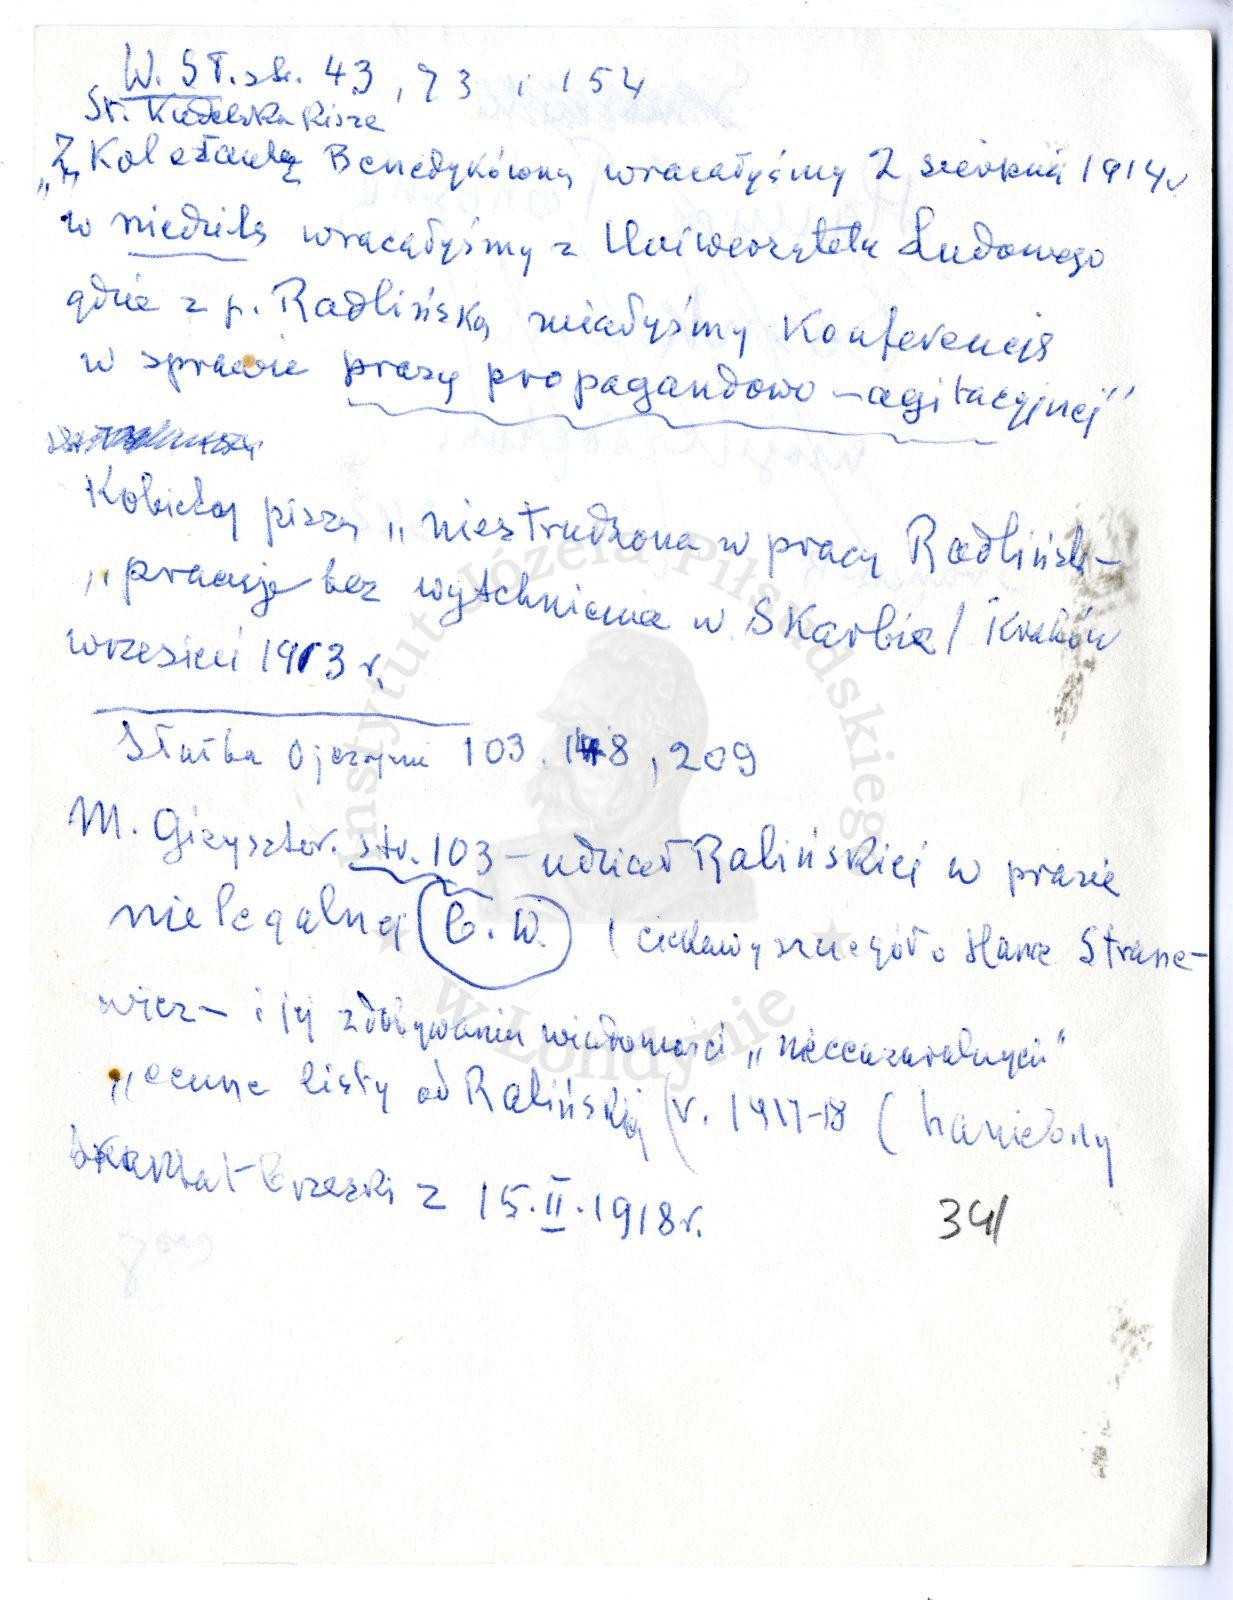 W. ST. str. 43, 73, 154
St. Kudelska pisze
„Z Koleżanką Benedykówną wracałyśmy 2 sierpnia 1914 r
w niedzielę wracałyśmy z Uniwersytetu Ludowego
gdzie z p. Radlińską miałyśmy Konferencję
w sprawie prasy propagandowo-agitacyjnej"
piszą „niestrudzona w pracy Radlińska-
„pracuje bez wytchnienia w Skarbie / Kraków
wrzesień 1913 r.
Służba Ojczyźnie 103. 148, 209
M. Giżycka str. 103 - udział Ralińskiej w prasie
nielegalnej ( ciekawy szczegół o
i jej zdobywaniu wiadomości „nieocenzuralnych"
„cenne listy od Ralińskiej (r. 1917-18 ( haniebny
traktat Brzeski z 15.II.1918 r.
34/
Instytut Józefa Piłsudskiego
w Londynie